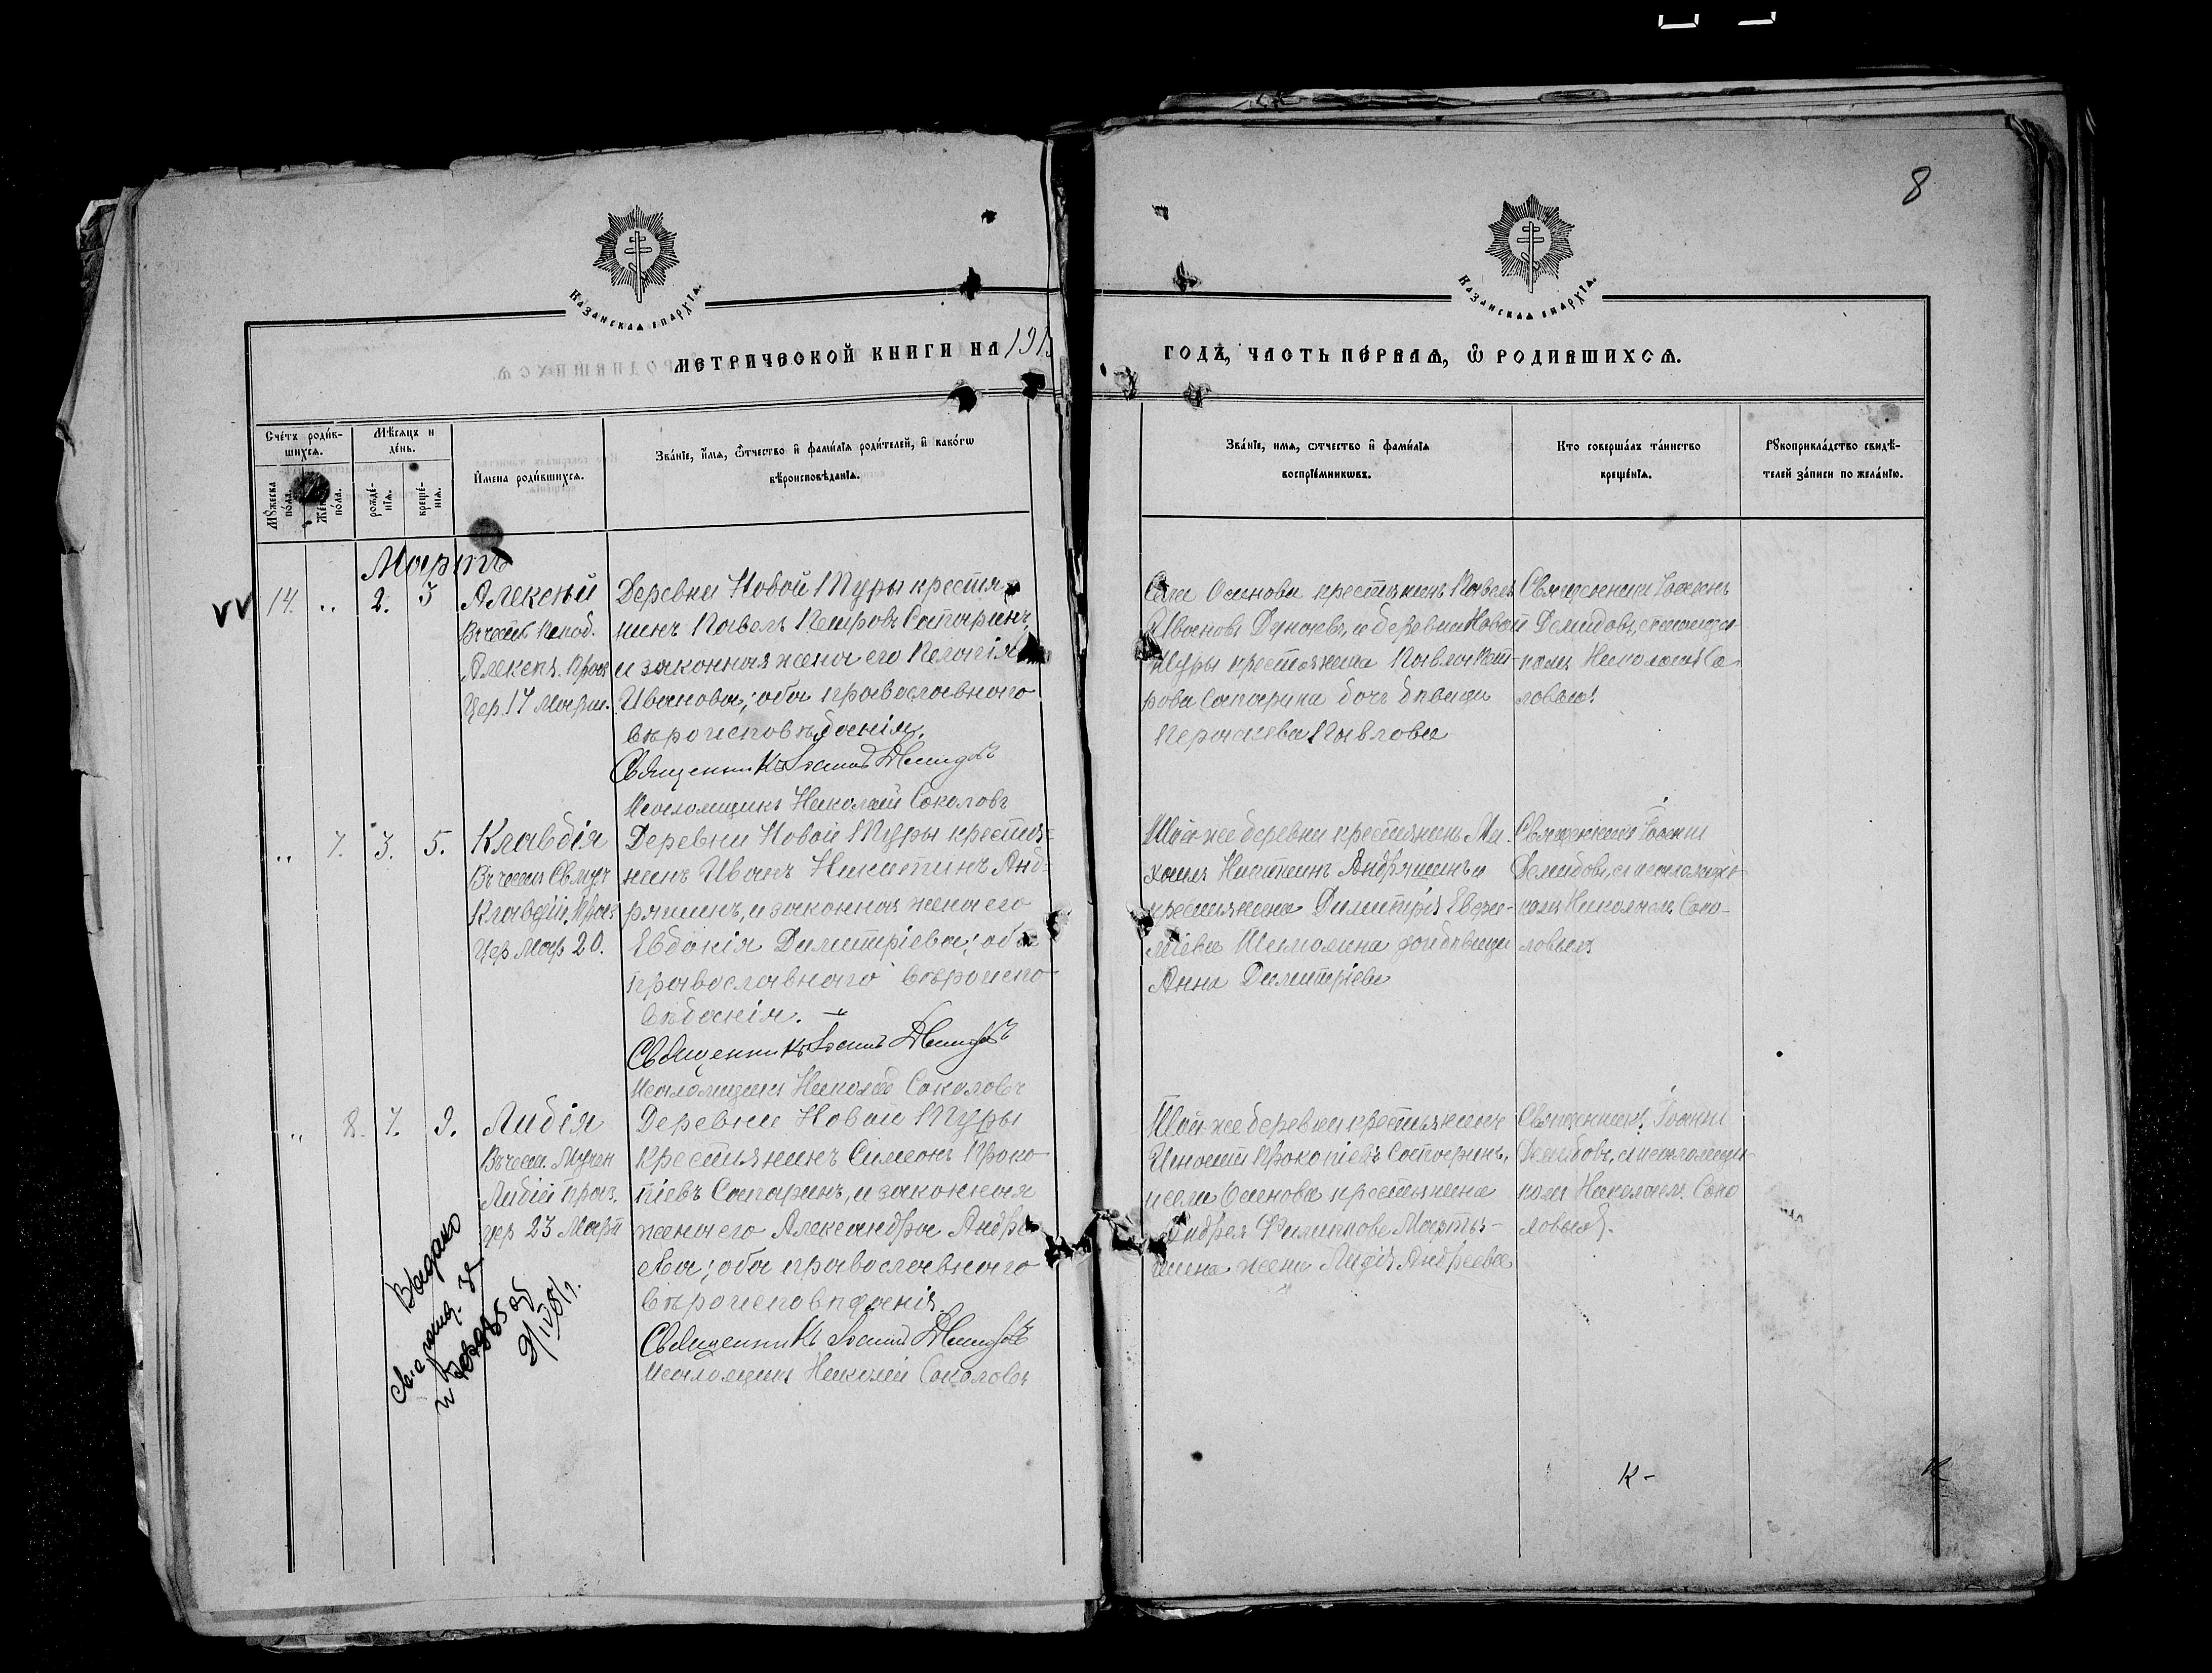 8
Казанская епархїа.
Казанская епархїа.
МЕТРИЧЕСКОЙ КНИГИ НА 191
ГОДЪ, ЧАСТЬ ПЕРВАЯ, Ѡ РОДИВШИХСЯ.
Счетъ роди́в-
шихся.
Мѣсяцъ и
де́нь.
Мꙋжеска
по́ла.
Же
по́ла.
рожде́-
нїя.
креще́-
нїя.
Имена роди́вшихся.
Зва́нїе, и́мя, ѻ́тчество и҆ фами́лїя роди́телей, и҆ како́гѡ
вѣроисповѣ́данїя.
Зва́нїе, имя, ѻтчество и҆ фами́лїя
воспрїе́мникѡвъ.
Кто соверша́лъ та́инство
креще́нїя.
Рꙋкоприкла́дство свидѣ́-
телей за́писи по жела́нїю.
Мартъ
14. „ 2. 3 Алексѣй
Въ честь Препод.
Алексѣя. Праз
Цер. 17 Марта.
Деревни Новой Туры крестья-
нинъ Павелъ Петровъ Сапаринъ,
и законная жена его Пелагія
Иванова; оба православнаго
вѣроисповѣданія.
Священникъ Іоаннъ Демидовъ
Псаломщикъ Николай Соколовъ
Села Осинова крестьянинъ Павелъ
Ивановъ и деревни Новой
Туры крестьянина Павла Пет-
рова Сапарина дочь дѣвица
Павлова
Священникъ Іоаннъ
Демидовъ, с псаломщи-
комъ Николаемъ Со
ловымъ
„ 7. 3. 5. Клавдія
Въ честь Св. муч
Клавдіи. Праз
Цер Мар 20.
Деревни Новой Туры крестья-
нинъ Иванъ Никитинъ Анд-
ряшинъ, и законная жена его
Евдокія Димитріева; оба
православнаго вѣроиспо-
вѣданія.
Священникъ Іоаннъ Демидовъ
Псаломщикъ Николай Соколовъ
Той-же деревни крестьянинъ Ми-
хаилъ Никитинъ Андряшинъ и
крестьянина Димитрія
дочь дѣвица
Анна Димитріева
Священникъ Іоаннъ
Демидовъ, съ псаломщи-
комъ Николаемъ Соко-
ловымъ
„ 8. 7. 9. Лидія
Въ честь Мучен
Лидіи праз.
цер 23 Март
Деревни Новой Туры
крестьянинъ Симеонъ Проко
піевъ Сапаринъ, и законная
жена его Александра Андре
ева; оба православнаго
вѣроисповѣданія.
Священникъ Іоаннъ Демидовъ
Псаломщикъ Николай Соколовъ
Той-же деревни крестьянинъ
Игнатій Прокопіевъ Сапаринъ,
и села Осинова крестьянина
Андрея Филиппова Марть-
жена Лидія Андреева
Священникъ Іоаннъ
Демидовъ, съ псаломщи-
комъ Николаемъ Соко
ловымъ.
Выдано
К-
К